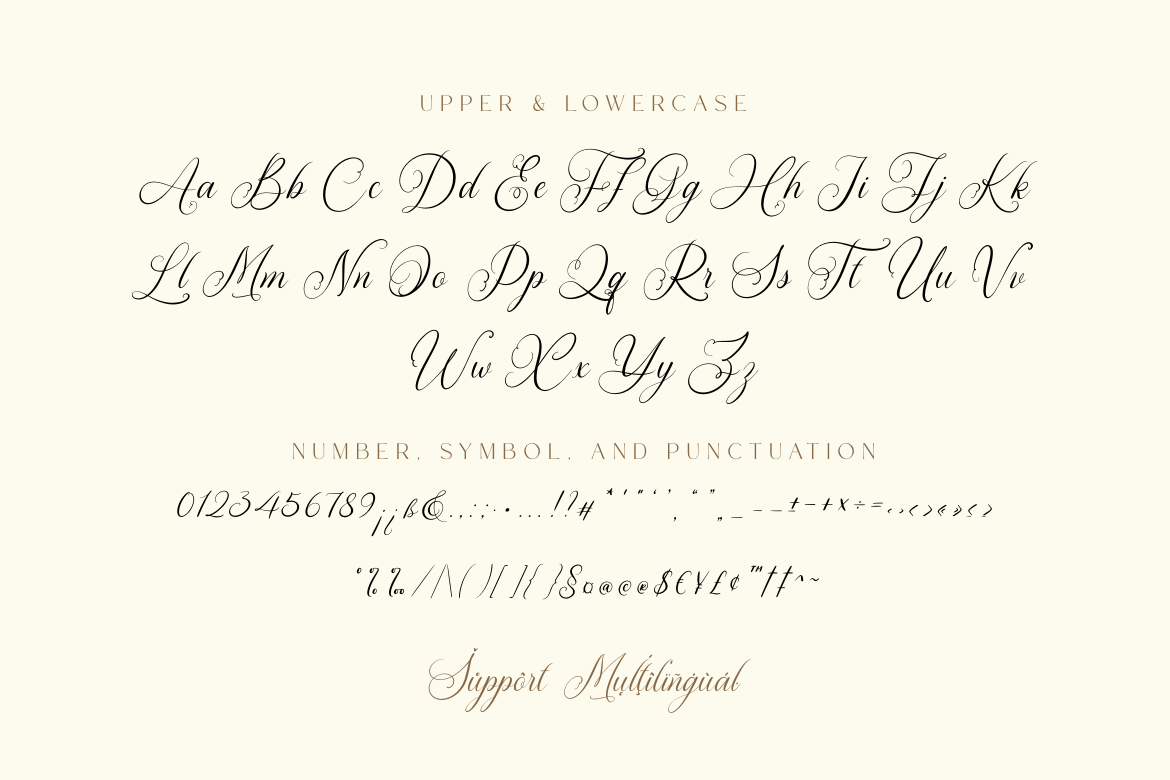 UPPER & LOWERCASE
Aa Bb Cc Dd Ee Ff Gg Hh Ii Jj Kk
Ll Mm Nn Oo Pp Qq Rr Ss Tt Uu Vv
Ww Xx Yy Zz
NUMBER, SYMBOL, AND PUNCTUATION
0123456789¡¿ß&.,:;·•…!?#*'"‘’‚“”„_–—±−+×÷=<>‹›«»≤≥
°%‰/|\()[]{}§¤@©®$€¥£¢™†‡^~
Šůppôrt Mųļťílïñġùáł